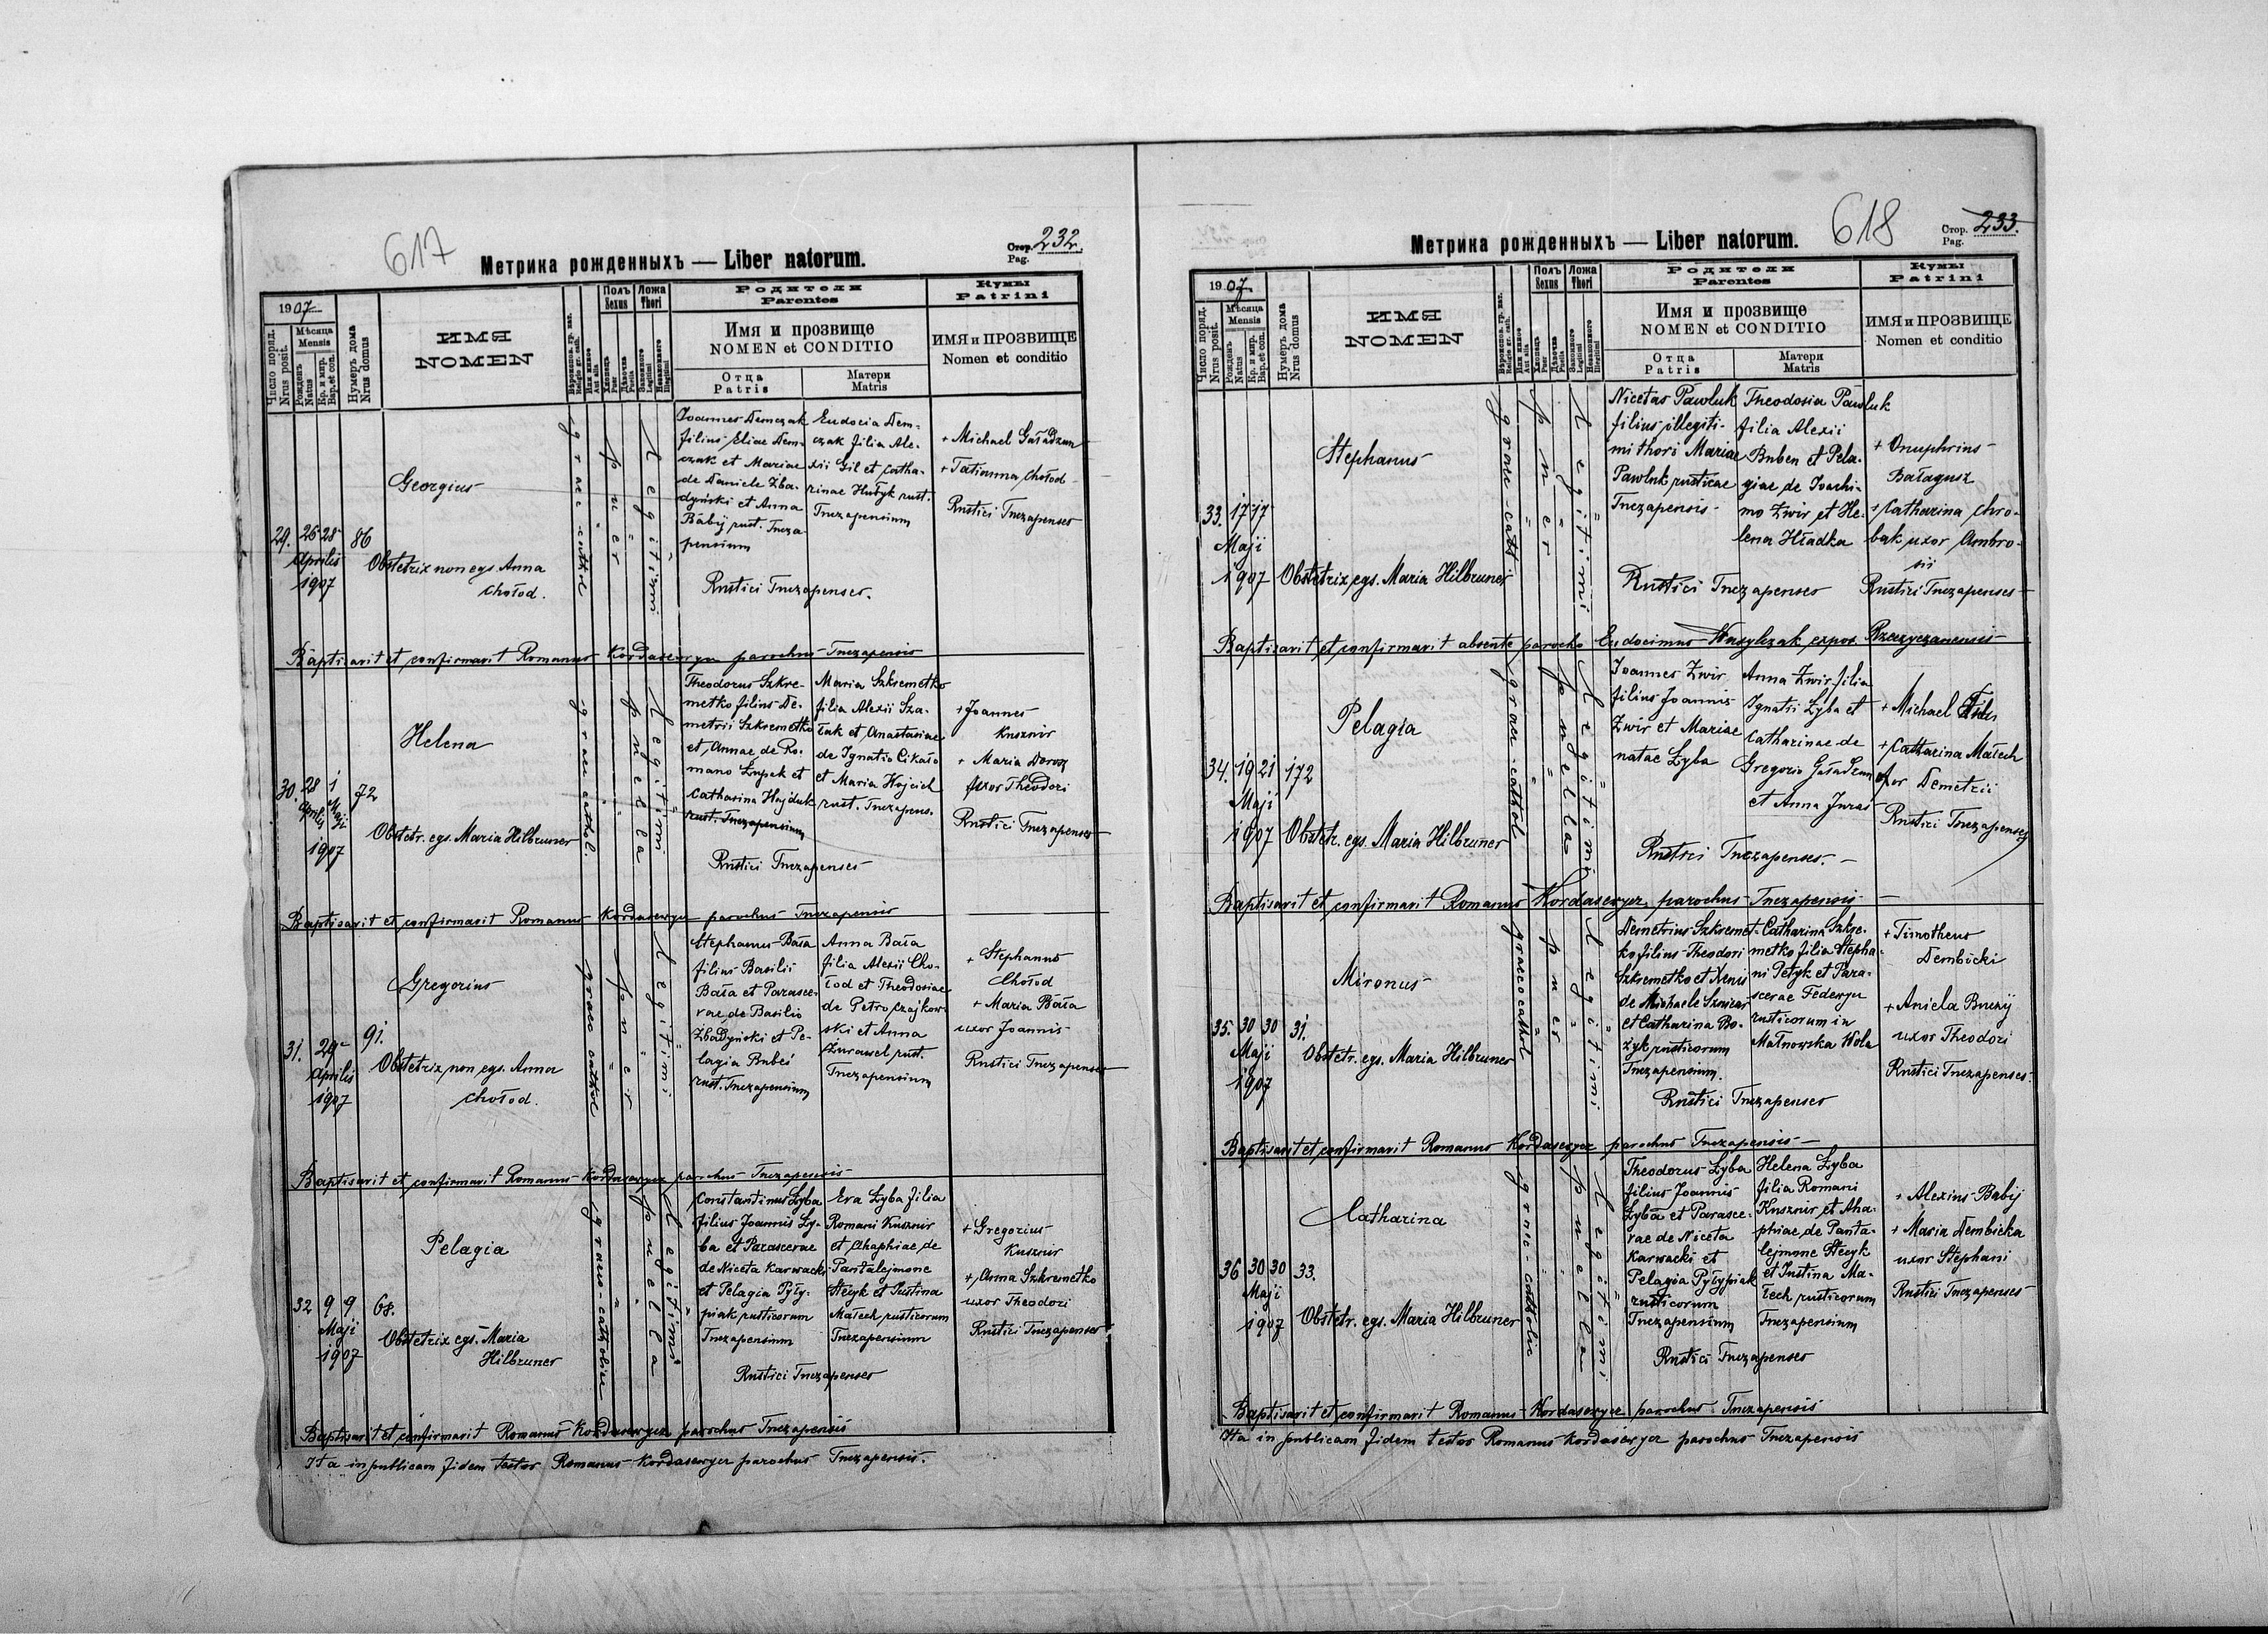 617
Метрика рожденныхъ — Liber natorum.
Стор. Pag. 232.
1907
Число поряд. Nrus posit.
Мѣсяца Mensis
Рожденъ Natus
Кр. и мир. Bap. et con.
Нумеръ дома Nrus domus
ИМЯ
NOMEN
Полъ Sexus
Ложа Thori
Родители
Parentes
Имя и прозвище
NOMEN et CONDITIO
Отца Patris
Матери Matris
Кумы
Patrini
ИМЯ и ПРОЗВИЩЕ
Nomen et conditio
29. 26 28 Aprilis 1907
86
Georgius
Obstetrix non egs. Anna
Chołod.
puer
legitimi
Joannes Demczak
filius Eliae Dem-
czak et Mariae
de Daniele Zba-
dyński et Anna
Babij rust. Tucza-
pensium
Eudocia Dem-
czak filia Ale-
xii Gil et Catha-
rinae Hutyk rust.
Tuczapensium
Rustici Tuczapenses.
+ Michael Gaładzun
+ Tatianna Chołod
Rustici Tuczapenses
Baptisavit et confirmavit Romanus Kordasewycz parochus Tuczapensis
30. 28 Aprilis 1 Maji 1907
72
Helena
Obstetr. egs. Maria Hilbruner
graeci cathol.
puella
legitimi
Theodorus Szkre-
metko filius De-
metrii Szkremetko
et Annae de Ro-
mano Lupak et
Catharina Hajduk
rust. Tuczapensium
Maria Szkremetko
filia Alexii Sza-
łak et Anastasiae
de Ignatio Cikało
et Maria Wojcich
rust. Tuczapens.
Rustici Tuczapenses
+ Joannes
Kusznir
+ Maria Dorosz
uxor Theodori
Rustici Tuczapenses
Baptisavit et confirmavit Romanus Kordasewycz parochus Tuczapensis
31. 29 Aprilis 1907
91.
Gregorius
Obstetrix non egs. Anna
Chołod.
graeco cathol
puer
legitimi
Stephanus Bała
filius Basilii
Bała et Parasce-
vae de Basilio
Zbadyński et Pe-
lagia Buben
rust. Tuczapensium
Anna Bała
filia Alexii Cho-
łod et Theodosiae
de Petro Czajkow-
ski et Anna
Żurawel rust.
Tuczapensium
+ Stephanus
Chołod
+ Maria Bała
uxor Joannis
Rustici Tuczapenses
Baptisavit et confirmavit Romanus Kordasewycz parochus Tuczapensis
32 9 9 Maji 1907
68.
Pelagia
Obstetrix egs. Maria
Hilbruner
graeco-catholic
puella
legitimi
Constantinus Zyba
filius Joannis Zy-
ba et Parascevae
de Niceta Karwacki
et Pelagia Pyły-
piak rusticorum
Tuczapensium
Eva Zyba filia
Romani Kusznir
et Ahaphiae de
Pantalejmone
Stecyk et Justina
Małech rusticorum
Tuczapensium
Rustici Tuczapenses
+ Gregorius
Kusznir
+ Anna Szkremetko
uxor Theodori
Rustici Tuczapenses
Baptisavit et confirmavit Romanus Kordasewycz parochus Tuczapensis
Ita in publicam fidem testor Romanus Kordasewycz parochus Tuczapensis.
618
Метрика рожденныхъ — Liber natorum.
Стор. Pag. 233.
1907
Число поряд. Nrus posit.
Мѣсяца Mensis
Рожденъ Natus
Кр. и мир. Bap. et con.
Нумеръ дома Nrus domus
ИМЯ
NOMEN
Полъ Sexus
Ложа Thori
Родители
Parentes
Имя и прозвище
NOMEN et CONDITIO
Отца Patris
Матери Matris
Кумы
Patrini
ИМЯ и ПРОЗВИЩЕ
Nomen et conditio
33. 17 17 Maji 1907
Stephanus
Obstetrix egs. Maria Hilbruner
graec-cath
puer
legitimi
Nicetas Pawluk
filius illegiti-
mi thori Mariae
Pawluk rusticae
Tuczapensis
Theodosia Pawluk
filia Alexii
Buben et Pela-
giae de Joachi-
mo Zwir et He-
lena Hładka
Rustici Tuczapenses
+ Onuphrius
Bałagusz
+ Catharina Chro-
bak uxor Ambro-
sii
Rustici Tuczapenses
Baptisavit et confirmavit absente parocho Eudocimus Wasylczak expos. Rzeczyczanensis
34. 19 21 Maji 1907
172
Pelagia
Obstetr. egs. Maria Hilbruner
graec-cathol
puella
legitimi
Joannes Zwir
filius Joannis
Zwir et Mariae
natae Zyba
Anna Zwir filia
Ignatii Zyba et
Catharinae de
Gregorio Gaładzun
et Anna Juras
Rustici Tuczapenses.
+ Michael
+ Catharina Małech
uxor Demetrii
Rustici Tuczapenses
Baptisavit et confirmavit Romanus Kordasewycz parochus Tuczapensis
35. 30 30 Maji 1907
31.
Mironus
Obstetr. egs. Maria Hilbruner
graeco cathol
puer
legitimi
Demetrius Szkremet-
ko filius Theodori
Szkremetko et Xenis
de Michaele
et Catharina Bo-
żyk rusticorum
Tuczapensium.
Catharina Szkre-
metko filia Stepha-
ni Petyk et Para-
scevae Federyn
rusticorum in
Małnowska Wola
Rustici Tuczapenses
+ Timotheus
Dembicki
+ Aniela Buczij
uxor Theodori
Rustici Tuczapenses.
Baptisavit et confirmavit Romanus Kordasewycz parochus Tuczapensis
36 30 30 Maji 1907
33.
Catharina
Obstetr. egs. Maria Hilbruner
graec-catholic
puella
legitimi
Theodorus Zyba
filius Joannis
Zyba et Parasce-
vae de Niceta
Karwacki et
Pelagia Pyłypiak
rusticorum
Tuczapensium
Helena Zyba
filia Romani
Kusznir et Aha-
phiae de Panta-
lejmone Stecyk
et Justina Ma-
łech rusticorum
Tuczapensium
Rustici Tuczapenses
+ Alexius Babij
+ Maria Dembicka
uxor Stephani
Rustici Tuczapenses
Baptisavit et confirmavit Romanus Kordasewycz parochus Tuczapensis
Ita in publicam fidem testor Romanus Kordasewycz parochus Tuczapensis